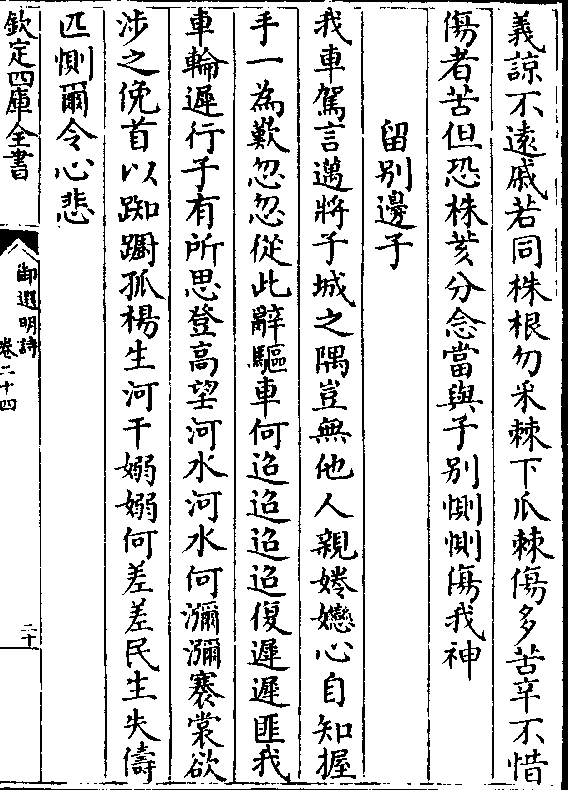 義諒不遠戚若同株根勿采棘下瓜棘傷多苦辛不惜
傷者苦但恐株荄分念當與子别惻惻傷我神
留别邊子
我車駕言邁將子城之隅豈無他人親婘戀心自知握
手一為歎忽忽從此辭驅車何迢迢迢迢復遲遲匪我
車輪遲行子有所思登高望河水河水何瀰瀰褰裳欲
涉之俛首以踟蹰孤楊生河干嫋嫋何差差民生失儔
匹惻爾令心悲
欽定四庫全書
御選明詩
卷二十四
二十